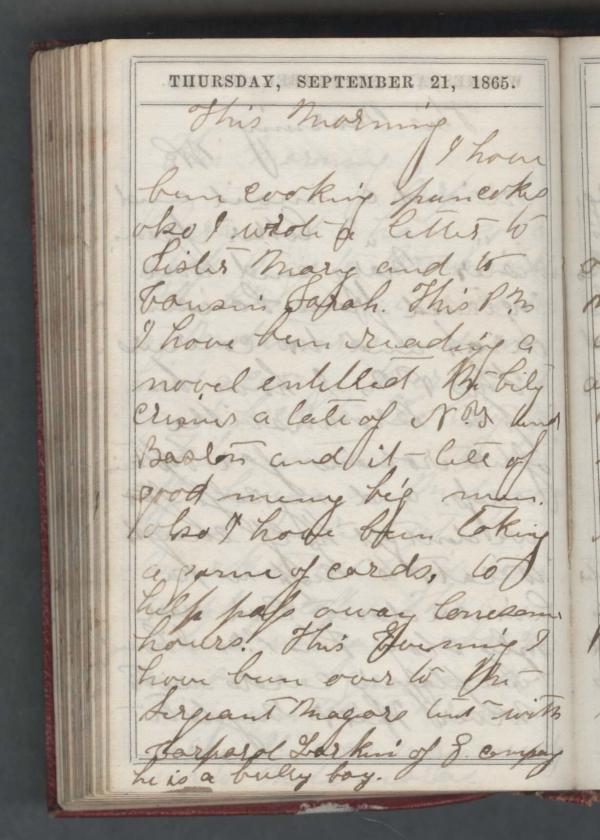 THURSDAY, SEPTEMBER 21, 1865.
This Morning
I have
been cooking pancake
also I wrote a letter to
Sister Mary and to
Cousin Sarah. This P.M
I have been reading a
novel entitled
a tale of N.Y and
Boston and it tells of
good meny big men.
also I have been taking
a game of cards, to
help pass away lonesom
hours. This Evening I
have been over to the
Sergeant Magors tent with
Corporal Larkin of G. company
he is a bully boy.